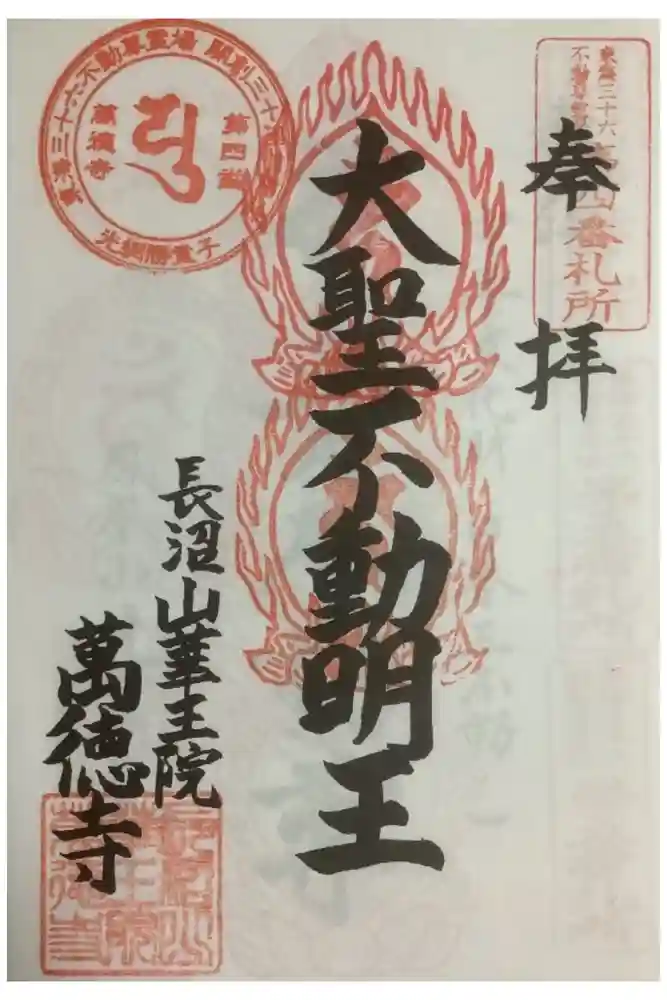 奉拝
東海三十六
不動尊霊場
第四番札所
大聖不動明王
長沼山華王院
萬徳寺
東海三十六不動尊霊場 開創三十
第四番
萬徳寺
光網勝童子